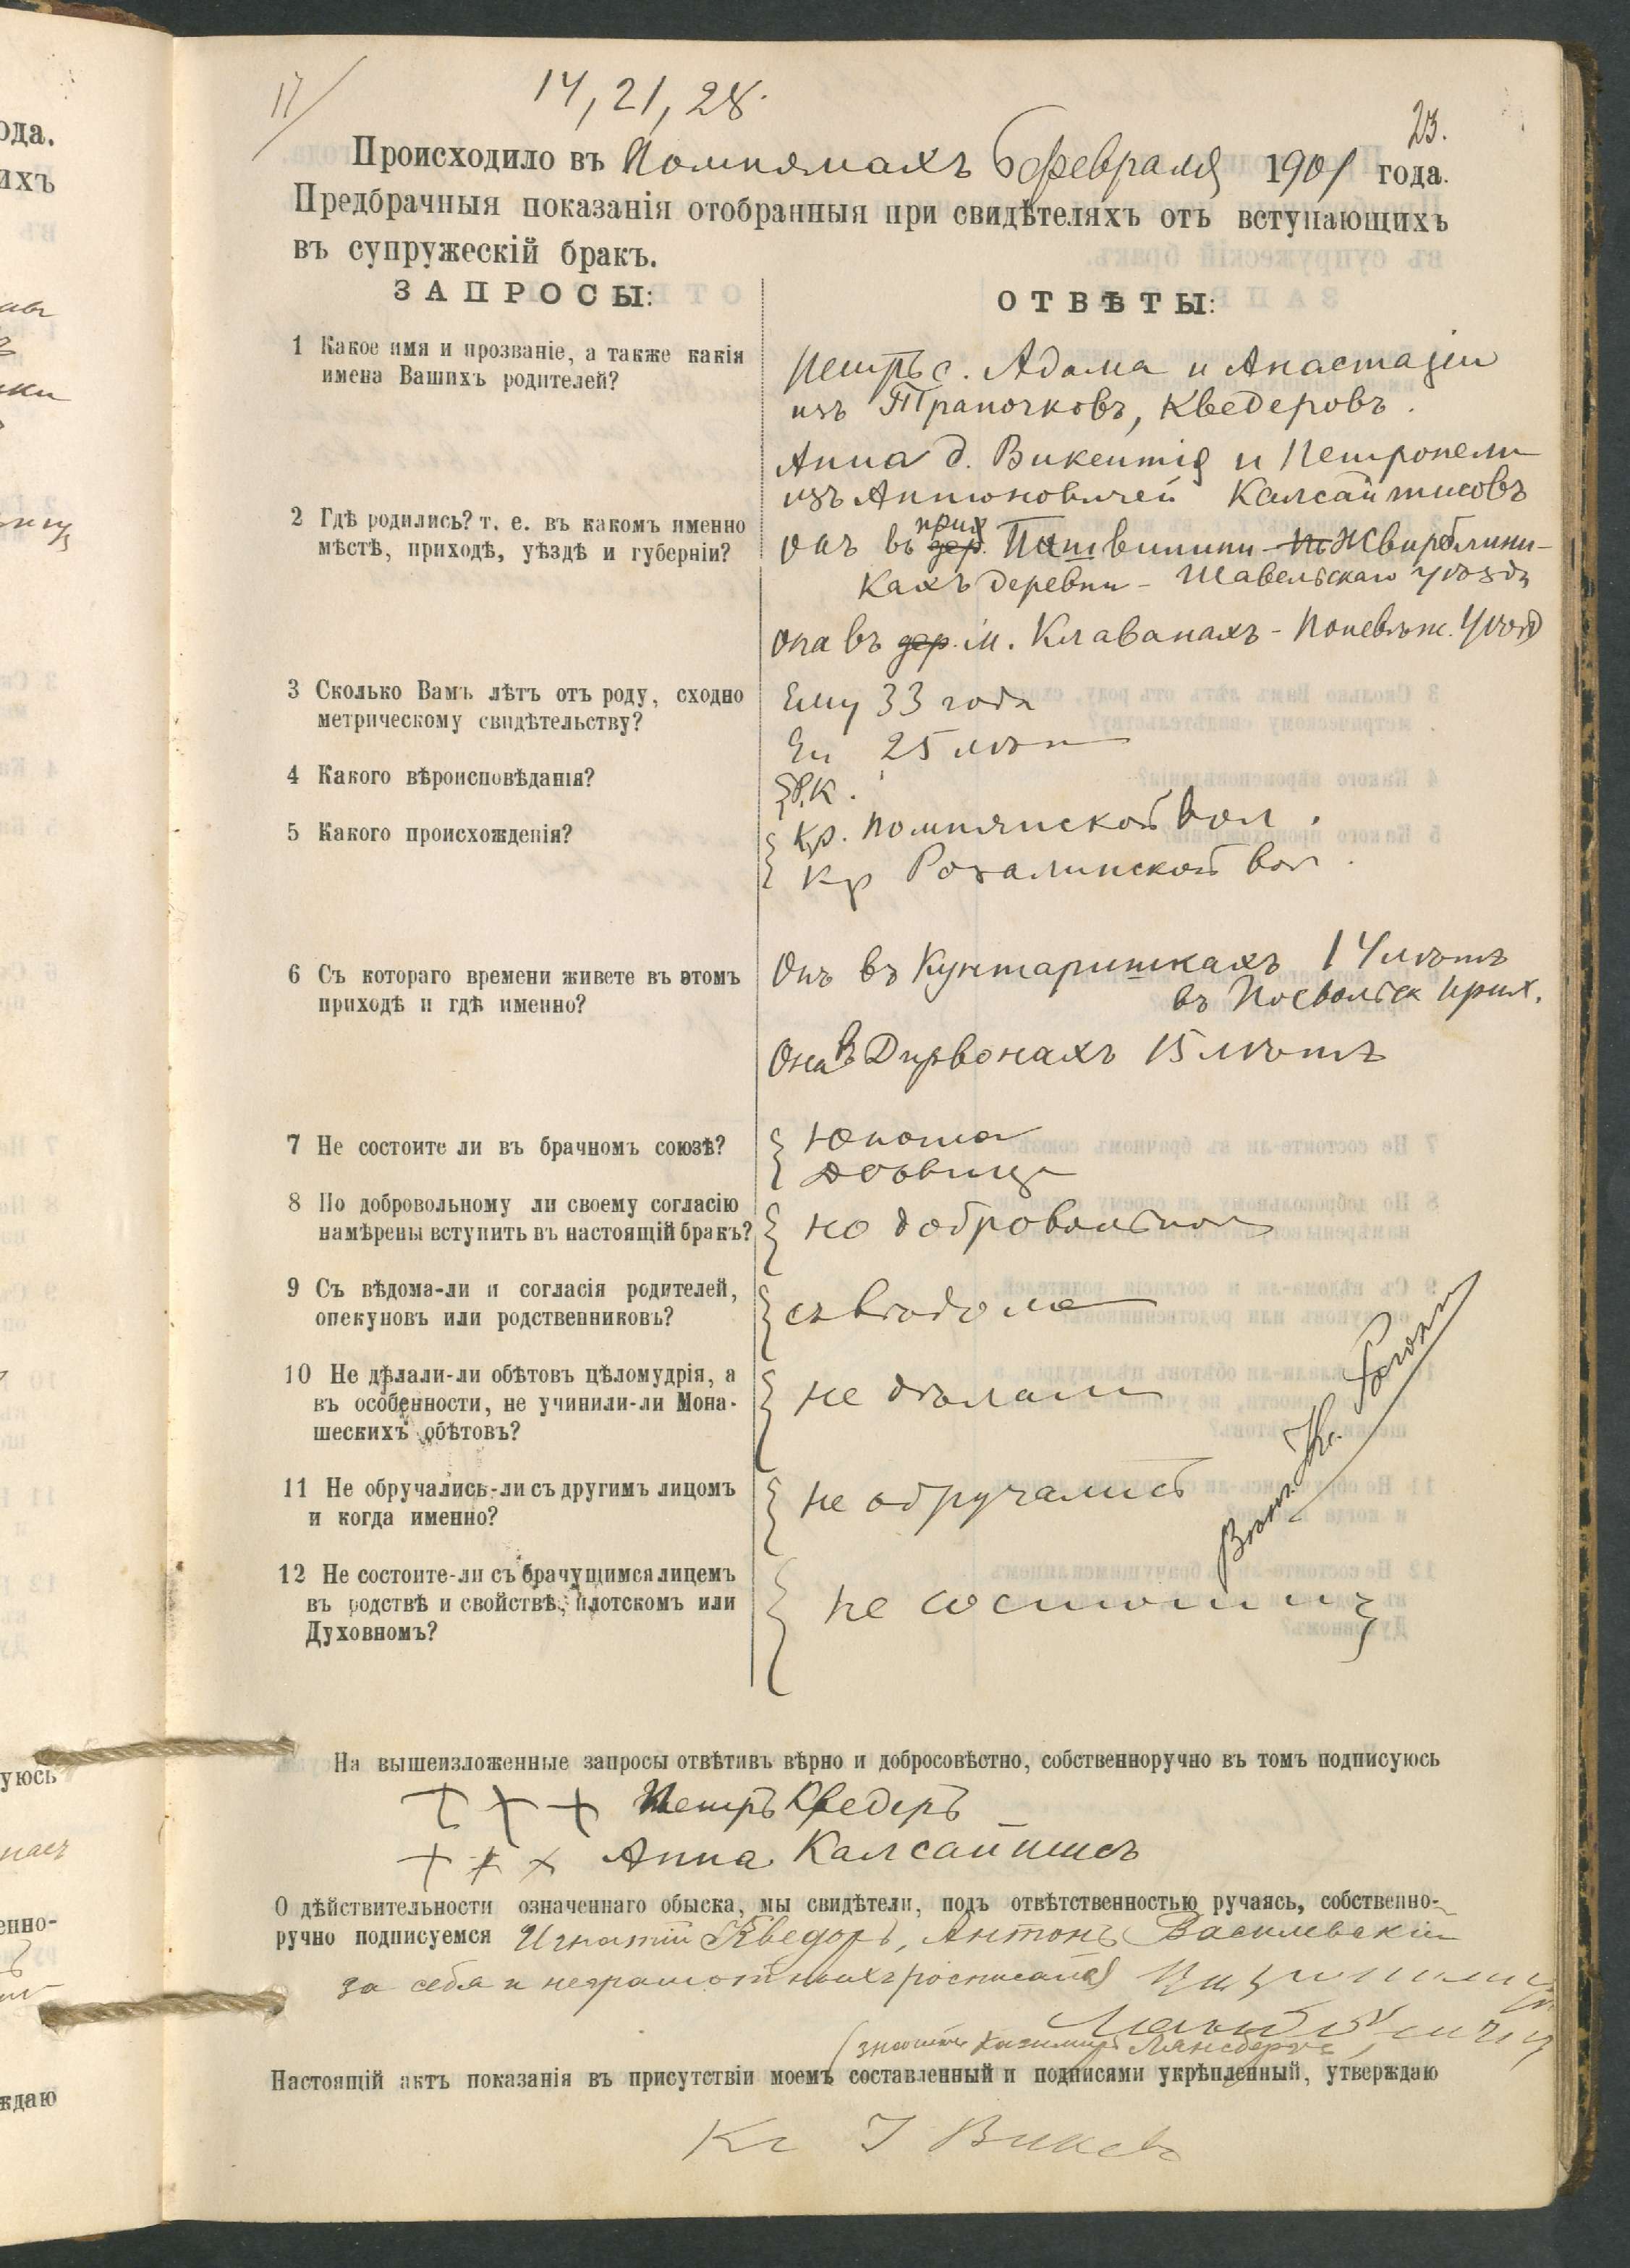 17
14, 21, 28.
23.
Происходило въ Помпянахъ 6 февраля 1901 года.
Предбрачныя показанія отобранныя при свидѣтеляхъ отъ вступающихъ
въ супружескій бракъ.
ЗАПРОСЫ:
ОТВѢТЫ:
1 Какое имя и прозваніе, а также какія
имена Вашихъ родителей?
Петръ с. Адама и Анастазіи
изъ Трапочковъ, Кведеровъ.
Анна д. Викентія и Петронели
изъ Антоновичей Калсайтисовъ
2 Гдѣ родились? т. е. въ какомъ именно
мѣстѣ, приходѣ, уѣздѣ и губерніи?
прих
онъ въ дер. Титвинини - Жвирблини-
кахъ деревни - Шавельскаго уѣзда
она въ дер. м. Клаванахъ - Поневѣж. Уѣзд
3 Сколько Вамъ лѣтъ отъ роду, сходно
метрическому свидѣтельству?
Ему 33 года
Ей 25 лѣт
4 Какого вѣроисповѣданія?
Р.К.
5 Какого происхожденія?
Кр. Помпянской вол.
Кр Розалинской вол.
6 Съ котораго времени живете въ этомъ
приходѣ и гдѣ именно?
Онъ въ Кунтаришкахъ 14 лѣтъ
въ Посвольск прих.
Она въ Дирвонахъ 15 лѣтъ
7 Не состоите ли въ брачномъ союзѣ?
Юноша
Дѣвица
8 По добровольному ли своему согласію
намѣрены вступить въ настоящій бракъ?
по добровольном
9 Съ вѣдома-ли и согласія родителей,
опекуновъ или родственниковъ?
съ вѣдома
10 Не дѣлали-ли обѣтовъ цѣломудрія, а
въ особенности, не учинили-ли Мона-
шескихъ обѣтовъ?
не дѣлали
11 Не обручались-ли съ другимъ лицомъ
и когда именно?
не обручались
12 Не состоите-ли съ брачущимся лицемъ
въ родствѣ и свойствѣ, плотскомъ или
Духовномъ?
не состоимъ
На вышеизложенные запросы отвѣтивъ вѣрно и добросовѣстно, собственноручно въ томъ подписуюсь
+ + + Петръ Кведеръ
+ + + Анна Калсайтисъ
О дѣйствительности означеннаго обыска, мы свидѣтели, подъ отвѣтственностью ручаясь, собственно-
ручно подписуемся Игнатій Кведоръ, Антонъ Василевскій
за себя и неграмотныхъ росписался
Казимиръ Лянсбергъ
Настоящій актъ показанія въ присутствіи моемъ составленный и подписями укрѣпленный, утверждаю
Кс І